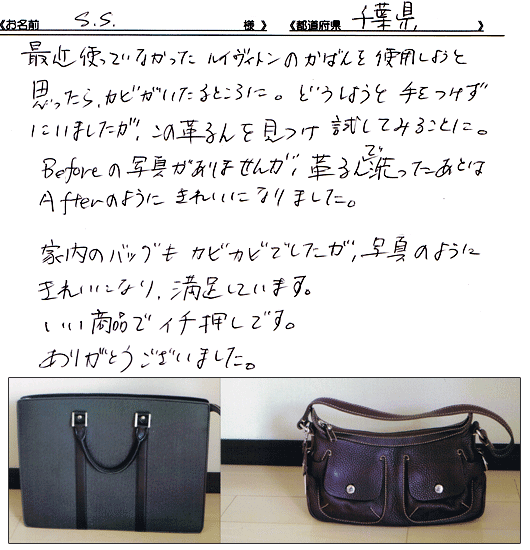 《お名前 S.S. 様》 《都道府県 千葉県 》
最近使っていなかったルイヴィトンのかばんを使用しようと
思ったら、カビがいたるところに。どうしようと手をつけず
にいましたが、この革るんを見つけ試してみることに。
Beforeの写真がありませんが、革るんで洗ったあとは
Afterのようにきれいになりました。
家内のバッグもカビカビでしたが、写真のように
きれいになり、満足しています。
いい商品でイチ押しです。
ありがとうございました。